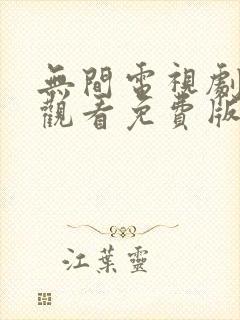 無間電視劇
觀看免費版
江葉靈